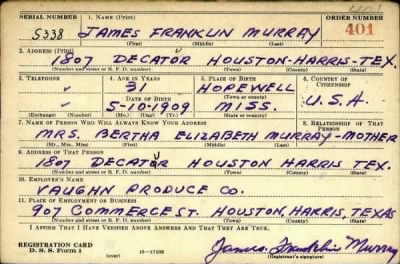 SERIAL NUMBER 1. NAME (Print) ORDER NUMBER
5338 JAMES FRANKLIN MURRAY 401
(First) (Middle) (Last)
2. ADDRESS (Print)
1807 DECATOR HOUSTON-HARRIS-TEX.
(Number and street or R. F. D. number) (Town) (County) (State)
3. TELEPHONE 4. AGE IN YEARS 5. PLACE OF BIRTH 6. COUNTRY OF CITIZENSHIP
31 HOPEWELL
DATE OF BIRTH (Town or county)
5-10-1909 MISS. U.S.A.
(Exchange) (Number) (Mo.) (Day) (Yr.) (State or country)
7. NAME OF PERSON WHO WILL ALWAYS KNOW YOUR ADDRESS 8. RELATIONSHIP OF THAT PERSON
MRS. BERTHA ELIZABETH MURRAY-MOTHER
(Mr., Mrs., Miss) (First) (Middle) (Last)
9. ADDRESS OF THAT PERSON
1807 DECATOR HOUSTON HARRIS TEX.
(Number and street or R. F. D. number) (Town) (County) (State)
10. EMPLOYER'S NAME
VAUGHN PRODUCE CO.
11. PLACE OF EMPLOYMENT OR BUSINESS
907 COMMERCE ST. HOUSTON, HARRIS, TEXAS
(Number and street or R. F. D. number) (Town) (County) (State)
I AFFIRM THAT I HAVE VERIFIED ABOVE ANSWERS AND THAT THEY ARE TRUE.
REGISTRATION CARD
D. S. S. Form 1 (over) 16-17105 James Franklin Murray
(Registrant's signature)